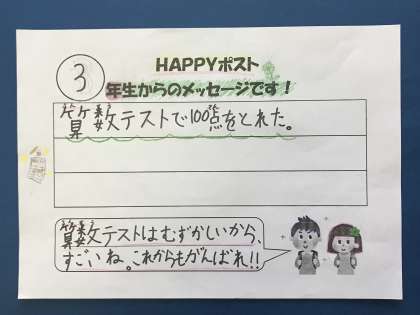 HAPPYポスト
③年生からのメッセージです!
算数テストで100点をとれた。
算数テストはむずかしいから、
すごいね。これからもがんばれ!!